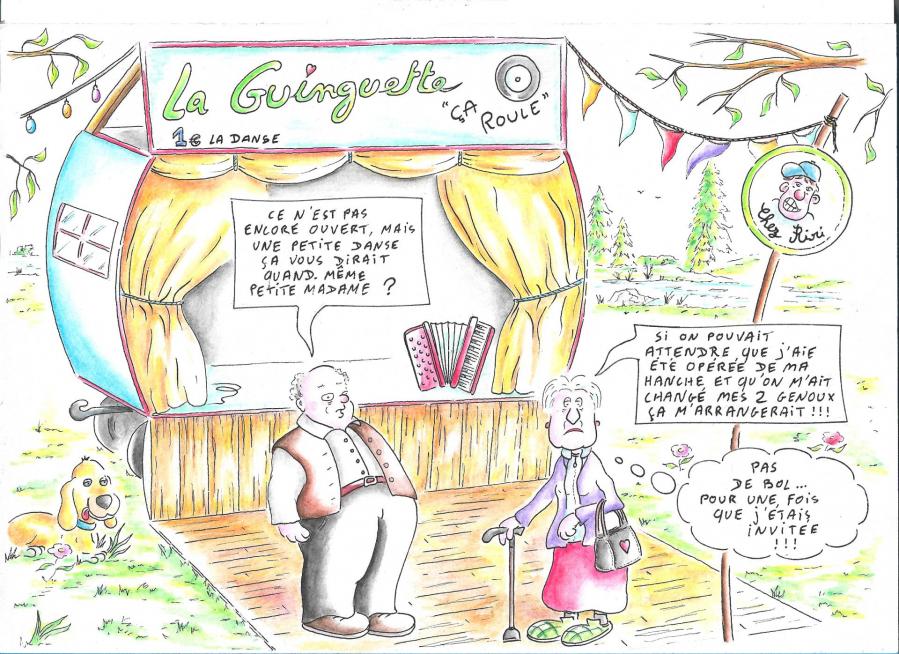 La Guinguette
"ÇA
ROULE"
1€ LA DANSE
Chez Riri
CE N'EST PAS
ENCORE OUVERT, MAIS
UNE PETITE DANSE
ÇA VOUS DIRAIT
QUAND MÊME
PETITE MADAME ?
SI ON POUVAIT
ATTENDRE QUE J'AIE
ÉTÉ OPÉRÉE DE MA
HANCHE ET QU'ON M'AIT
CHANGÉ MES 2 GENOUX
ÇA M'ARRANGERAIT !!!
PAS
DE BOL...
POUR UNE FOIS
QUE J'ÉTAIS
INVITÉE
!!!